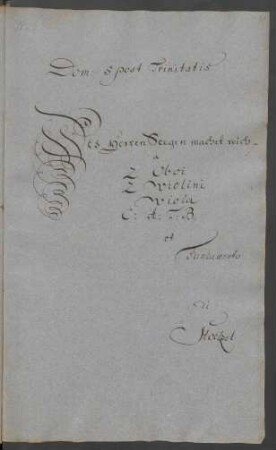 Dom: 5 post Trinitatis
Des Herren Seegen machet reich
a
2 Oboi
2 Violini
Viola
C: A: T: B.
et
Fundamento
di
Stoelzel